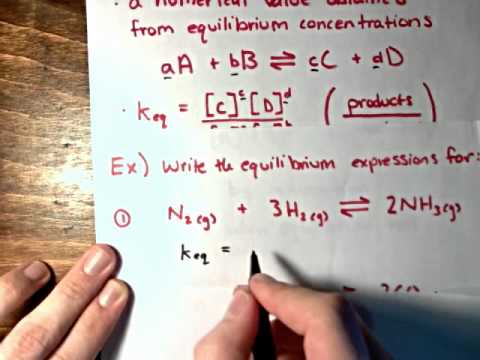 a numerical value
from equilibrium concentrations
aA + bB ⇌ cC + dD
· Keq = [C]^c [D]^d ( products
Ex) Write the equilibrium expressions for:
① N₂(g) + 3H₂(g) ⇌ 2NH₃(g)
Keq =